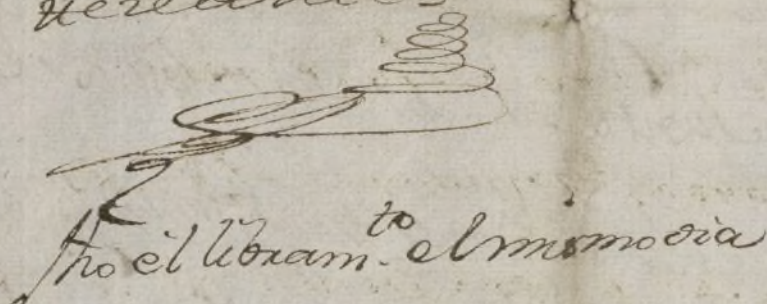 fho el libram.to el mismo dia